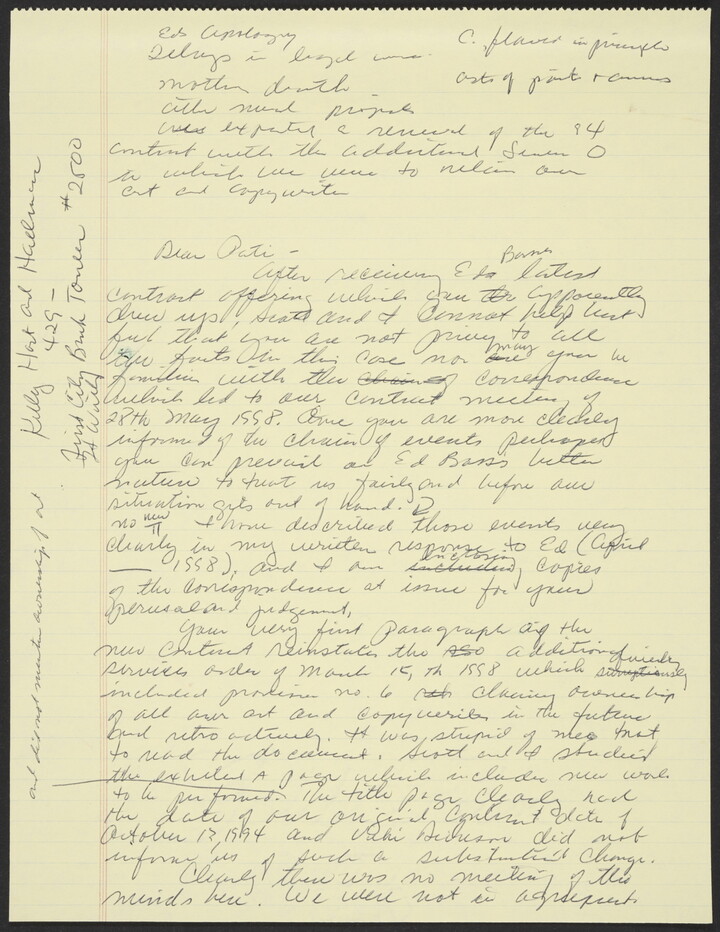 Eds Apology
Delays in legal
mother death
other mural
C. flawed in principle
costs of paint +
expected a renewal of the 94
contract with the additional Seven O
to which we were to retain our
art and copywrite
Dear Pati -
After receiving Eds Bass latest
contract offering which you apparently
drew up, Scott and I cannot help but
feel that you are not privy to all
the facts in this case nor may you be
familiar with the chain of correspondence
which led to our contract meeting of
28th May 1998. Once you are more clearly
informed of the chain of events perhaps
you can prevail on Ed Bass's better
nature to treat us fairly and before our
situation gets out of hand.
no new ¶ I have described those events very
clearly in my written response to Ed (April
— 1998), and I am including enclosing copies
of the correspondence at issue for your
perusal and judgement,
Your very first Paragraph of the
new contract reinstates the additional
services order of March 15, th 1998 which
included provision no. 6 claiming ownership
of all our art and copywrites in the future
and retroactively. It was stupid of me not
to read the document. Scott and I studied
the exhibit A page which includes new work
to be performed. The title page clearly had
the date of our original contract date of
October 17, 1994 and did not
inform us of such a substantial change.
Clearly there was no meeting of the
minds here. We were not in agreement
Kelly Hart and Hallman
429 —
First City Bank Tower #2500
Ft Worth
and did not mention ownership of art